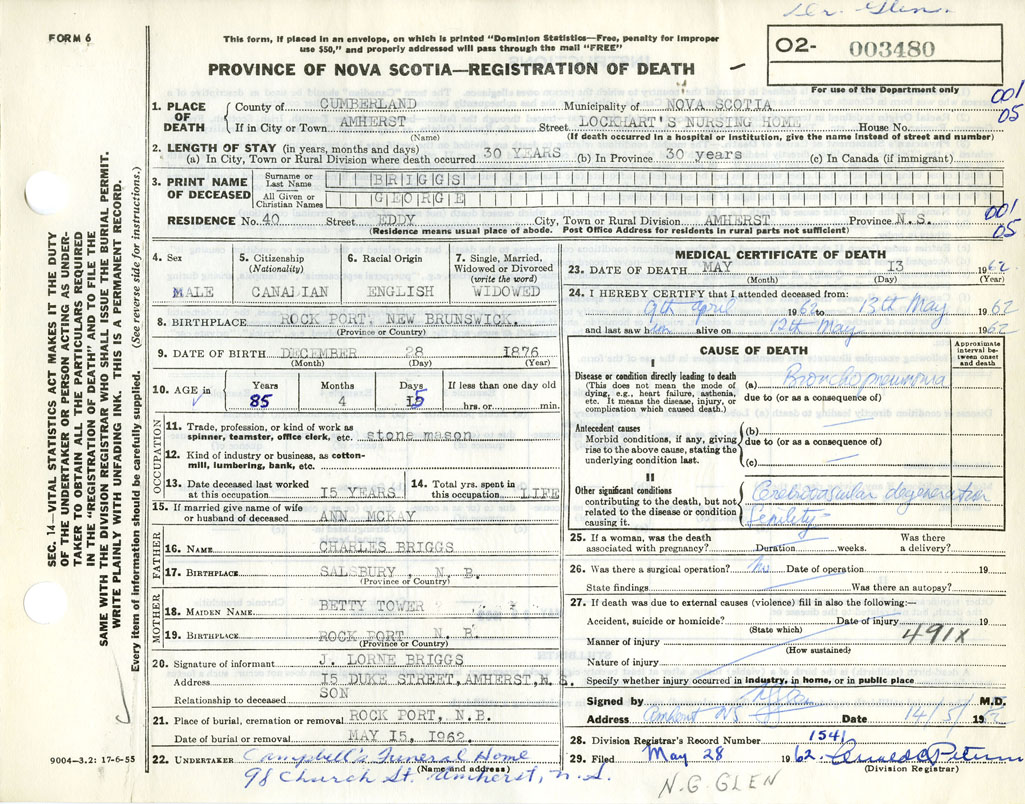 Dr. Glen.
FORM 6
This form, if placed in an envelope, on which is printed "Dominion Statistics—Free, penalty for improper
use $50," and properly addressed will pass through the mail "FREE"
PROVINCE OF NOVA SCOTIA—REGISTRATION OF DEATH
O2- 003480
For use of the Department only
001
05
1. PLACE OF DEATH County of CUMBERLAND Municipality of NOVA SCOTIA
If in City or Town AMHERST Street LOCKHART'S NURSING HOME House No.
(Name) (If death occurred in a hospital or institution, give the name instead of street and number)
2. LENGTH OF STAY (in years, months and days)
(a) In City, Town or Rural Division where death occurred 30 YEARS (b) In Province 30 years (c) In Canada (if immigrant)
3. PRINT NAME OF DECEASED Surname or Last Name BRIGGS
All Given or Christian Names GEORGE
001
05
RESIDENCE No. 40 Street EDDY City, Town or Rural Division AMHERST Province N.S.
(Residence means usual place of abode. Post Office Address for residents in rural parts not sufficient)
4. Sex MALE
5. Citizenship (Nationality) CANADIAN
6. Racial Origin ENGLISH
7. Single, Married, Widowed or Divorced (write the word) WIDOWED
8. BIRTHPLACE ROCK PORT, NEW BRUNSWICK.
(Province or Country)
9. DATE OF BIRTH DECEMBER 28 1876
(Month) (Day) (Year)
10. AGE in Years 85 Months 4 Days 15 If less than one day old hrs. or min.
OCCUPATION
11. Trade, profession, or kind of work as
spinner, teamster, office clerk, etc. stone mason
12. Kind of industry or business, as cotton-
mill, lumbering, bank, etc.
13. Date deceased last worked at this occupation 15 YEARS
14. Total yrs. spent in this occupation LIFE
15. If married give name of wife
or husband of deceased ANN MCKAY
FATHER
16. NAME CHARLES BRIGGS
17. BIRTHPLACE SALSBURY, N. B.
(Province or Country)
MOTHER
18. MAIDEN NAME BETTY TOWER
19. BIRTHPLACE ROCK PORT N. B.
(Province or Country)
20. Signature of informant J. LORNE BRIGGS
Address 15 DUKE STREET, AMHERST, N. S.
Relationship to deceased SON
21. Place of burial, cremation or removal ROCK PORT, N.B.
Date of burial or removal MAY 15, 1962.
22. UNDERTAKER Campbell's Funeral Home
(Name and address)
98 Church St. Amherst, N.S.
MEDICAL CERTIFICATE OF DEATH
23. DATE OF DEATH MAY 13 1962
(Month) (Day) (Year)
24. I HEREBY CERTIFY that I attended deceased from:
9th April 1962 to 13th May 1962
and last saw him alive on 12th May 1962
CAUSE OF DEATH
Approximate interval between onset and death
I
Disease or condition directly leading to death
(This does not mean the mode of
dying, e.g., heart failure, asthenia,
etc. It means the disease, injury, or
complication which caused death.)
(a) Bronchopneumonia
due to (or as a consequence of)
Antecedent causes
Morbid conditions, if any, giving
rise to the above cause, stating the
underlying condition last.
(b)
due to (or as a consequence of)
(c)
II
Other significant conditions
contributing to the death, but not
related to the disease or condition
causing it.
Cerebrovascular degeneration
Senility
25. If a woman, was the death
associated with pregnancy? Duration weeks. Was there a delivery?
26. Was there a surgical operation? No Date of operation 19
State findings Was there an autopsy?
27. If death was due to external causes (violence) fill in also the following:—
Accident, suicide or homicide? Date of injury 19
(State which)
491X
Manner of injury
(How sustained)
Nature of injury
Specify whether injury occurred in industry, in home, or in public place
Signed by M.D.
Address Amherst NS Date 14/5/1962
28. Division Registrar's Record Number 1541
29. Filed May 28 1962
(Division Registrar)
N.G. GLEN
SEC. 14—VITAL STATISTICS ACT MAKES IT THE DUTY
OF THE UNDERTAKER OR PERSON ACTING AS UNDER-
TAKER TO OBTAIN ALL THE PARTICULARS REQUIRED
IN THE "REGISTRATION OF DEATH" AND TO FILE THE
SAME WITH THE DIVISION REGISTRAR WHO SHALL ISSUE THE BURIAL PERMIT.
WRITE PLAINLY WITH UNFADING INK. THIS IS A PERMANENT RECORD.
Every item of information should be carefully supplied. (See reverse side for instructions.)
9004—3.2: 17-6-55